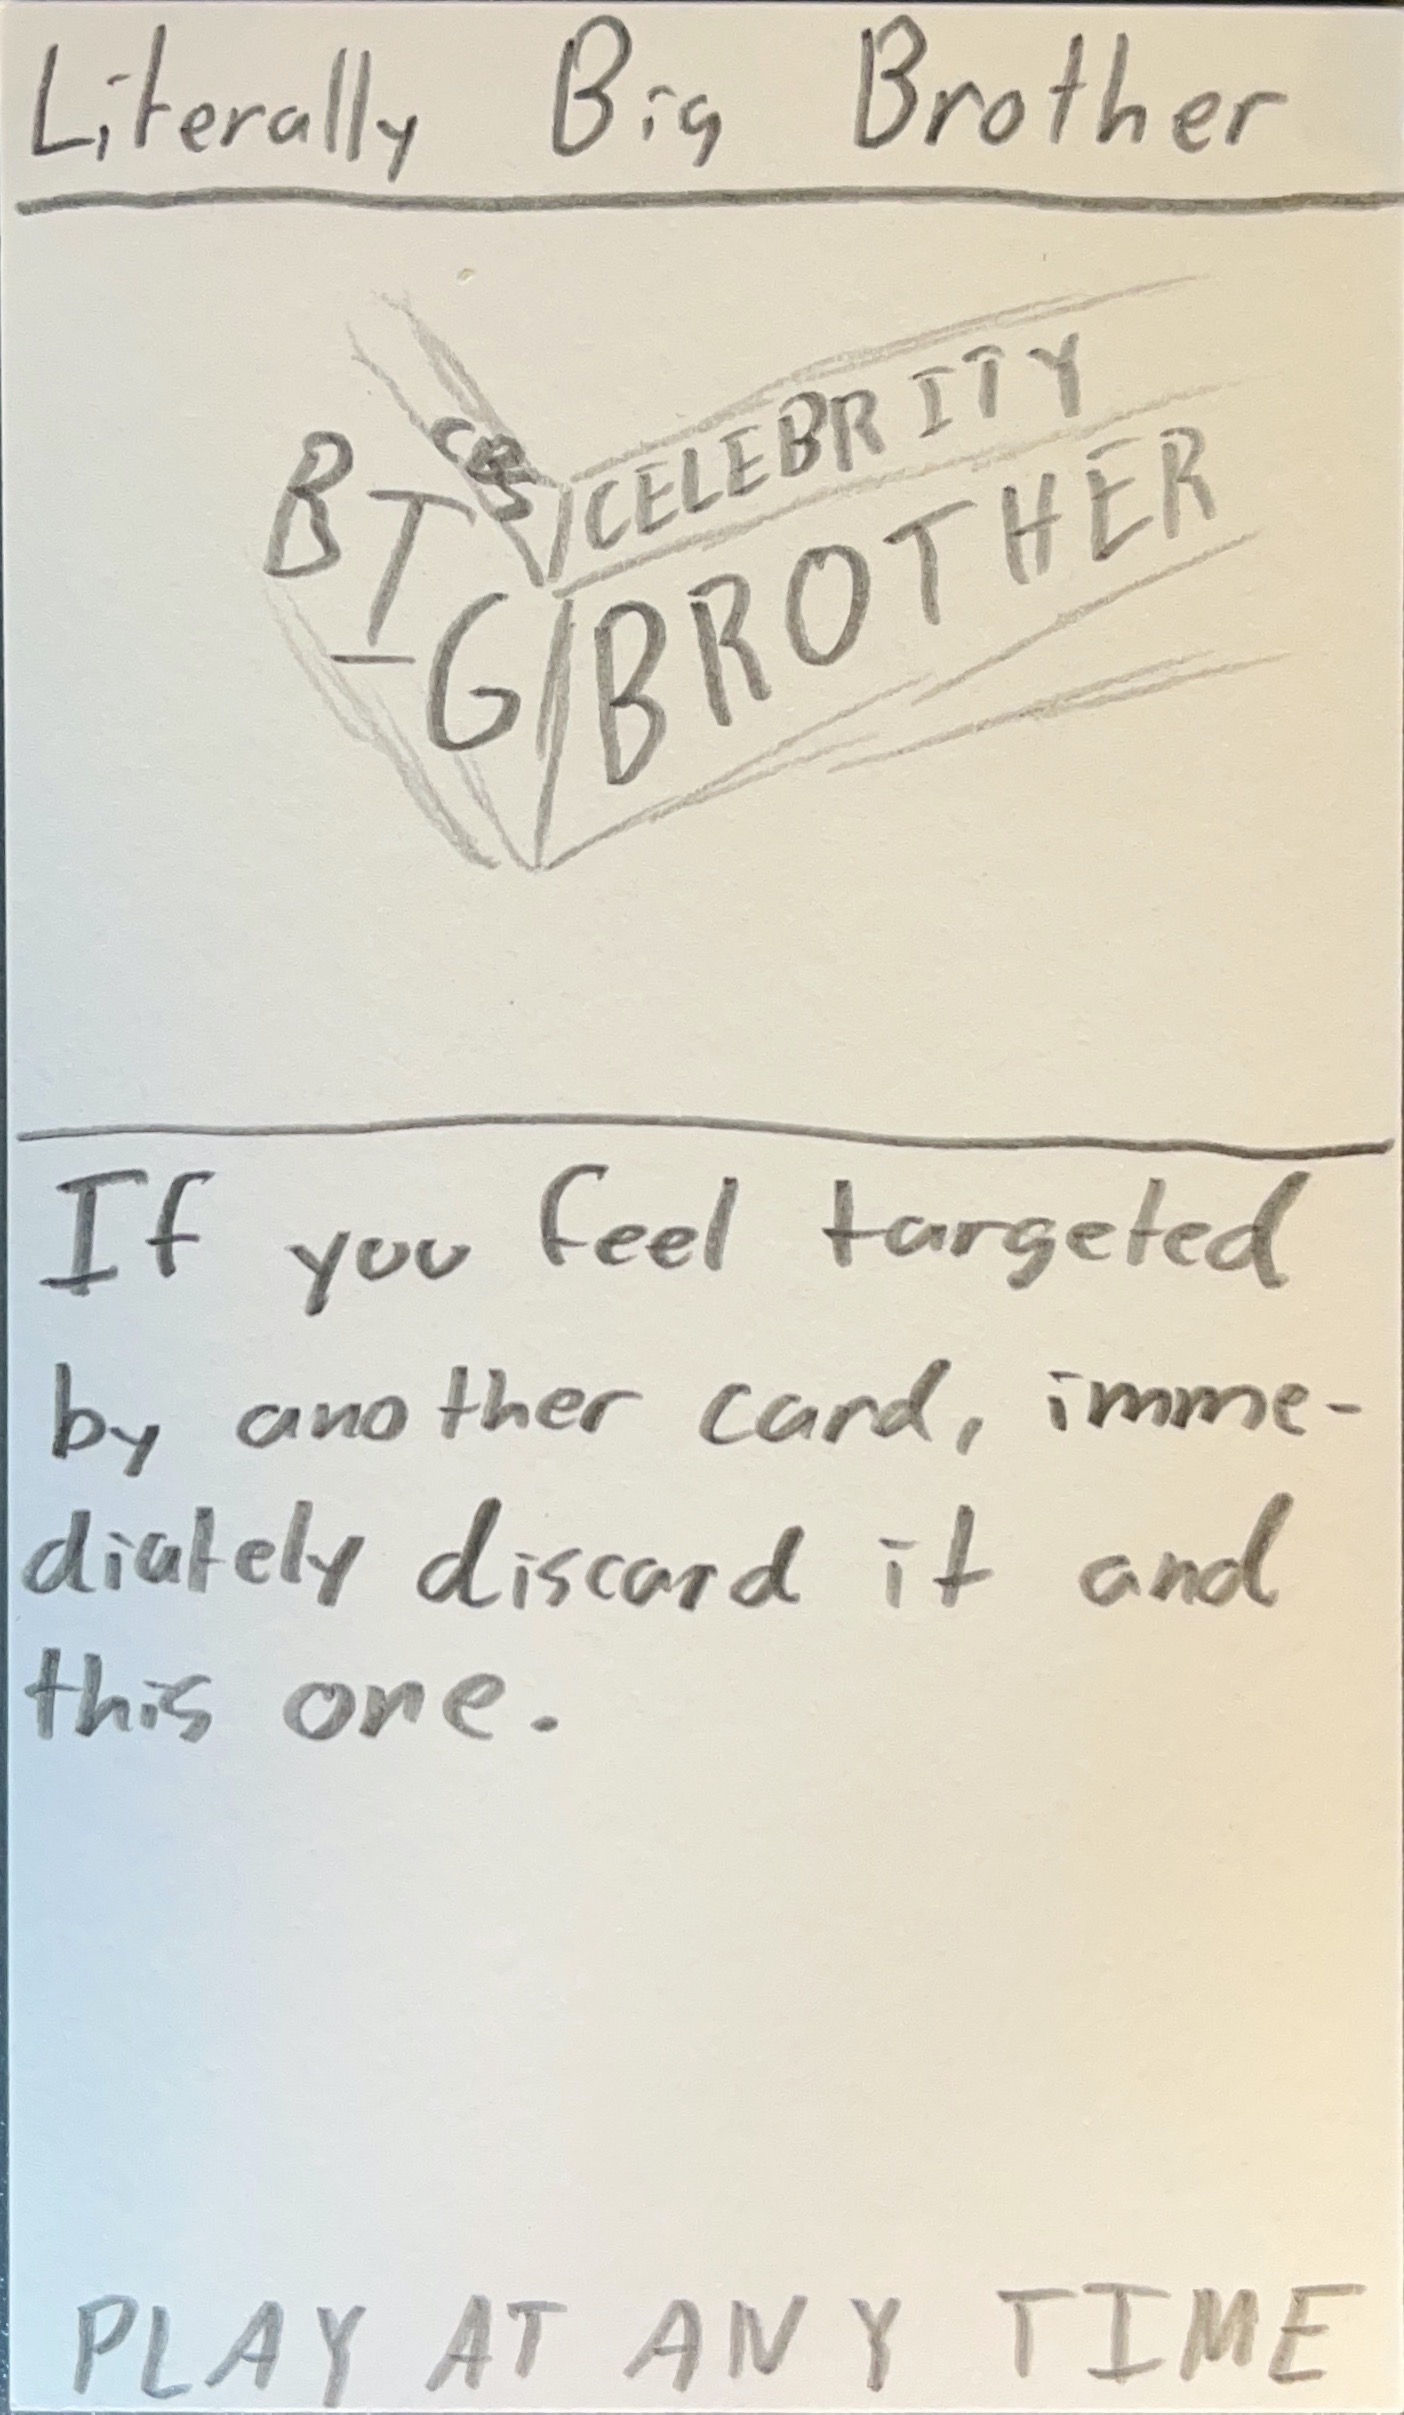 Literally Big Brother
CBS
CELEBRITY
BIG BROTHER
If you feel targeted
by another card, imme-
diately discard it and
this one.
PLAY AT ANY TIME